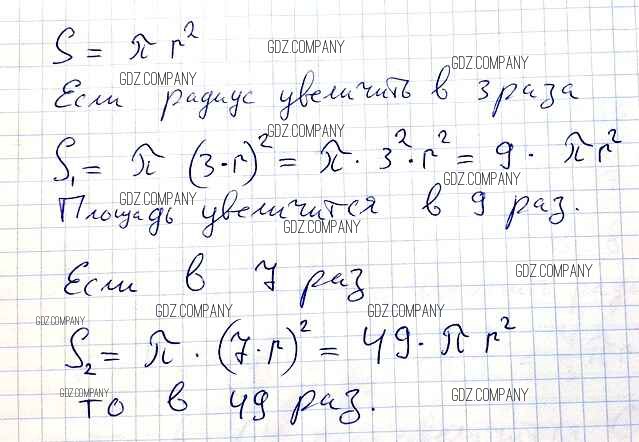 S = π r²
GDZ.COMPANY
GDZ.COMPANY
GDZ.COMPANY
Если радиус увеличить в 3 раза
GDZ.COMPANY
S₁ = π (3·r)² = π · 3² · r² = 9 · π r²
GDZ.COMPANY
GDZ.COMPANY
Площадь увеличится в 9 раз.
GDZ.COMPANY
Если в 7 раз
GDZ.COMPANY
GDZ.COMPANY
GDZ.COMPANY
GDZ.COMPANY
S₂ = π · (7·r)² = 49 · π r²
GDZ.COMPANY
GDZ.COMPANY
то в 49 раз.